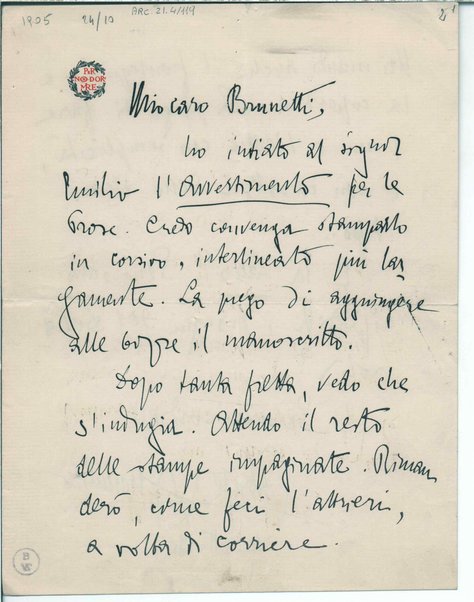 1905 24/10 ARC 21.4/119 2¹
PER
NON DOR
MIRE
Mio caro Brunetti,
ho inviato al signor
Emilio l'Avvertimento per le
Prose. Credo convenga stamparlo
in corsivo, interlineato più lar
gamente. La prego di aggiungere
alle bozze il manoscritto.
Dopo tanta fretta, vedo che
s'indugia. Attendo il resto
delle stampe impaginate. Riman
derò, come feci l'altrieri,
a volta di corriere.